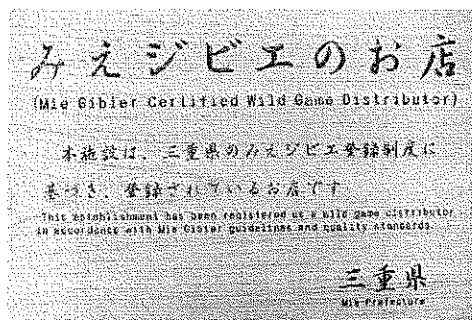 みえジビエのお店
(Mie Gibier Certified Wild Game Distributor)
本施設は、三重県のみえジビエ登録制度に
基づき、登録されているお店です
This establishment has been registered as a wild game distributor
in accordance with Mie Gibier guidelines and quality standards.
三重県
Mie Prefecture